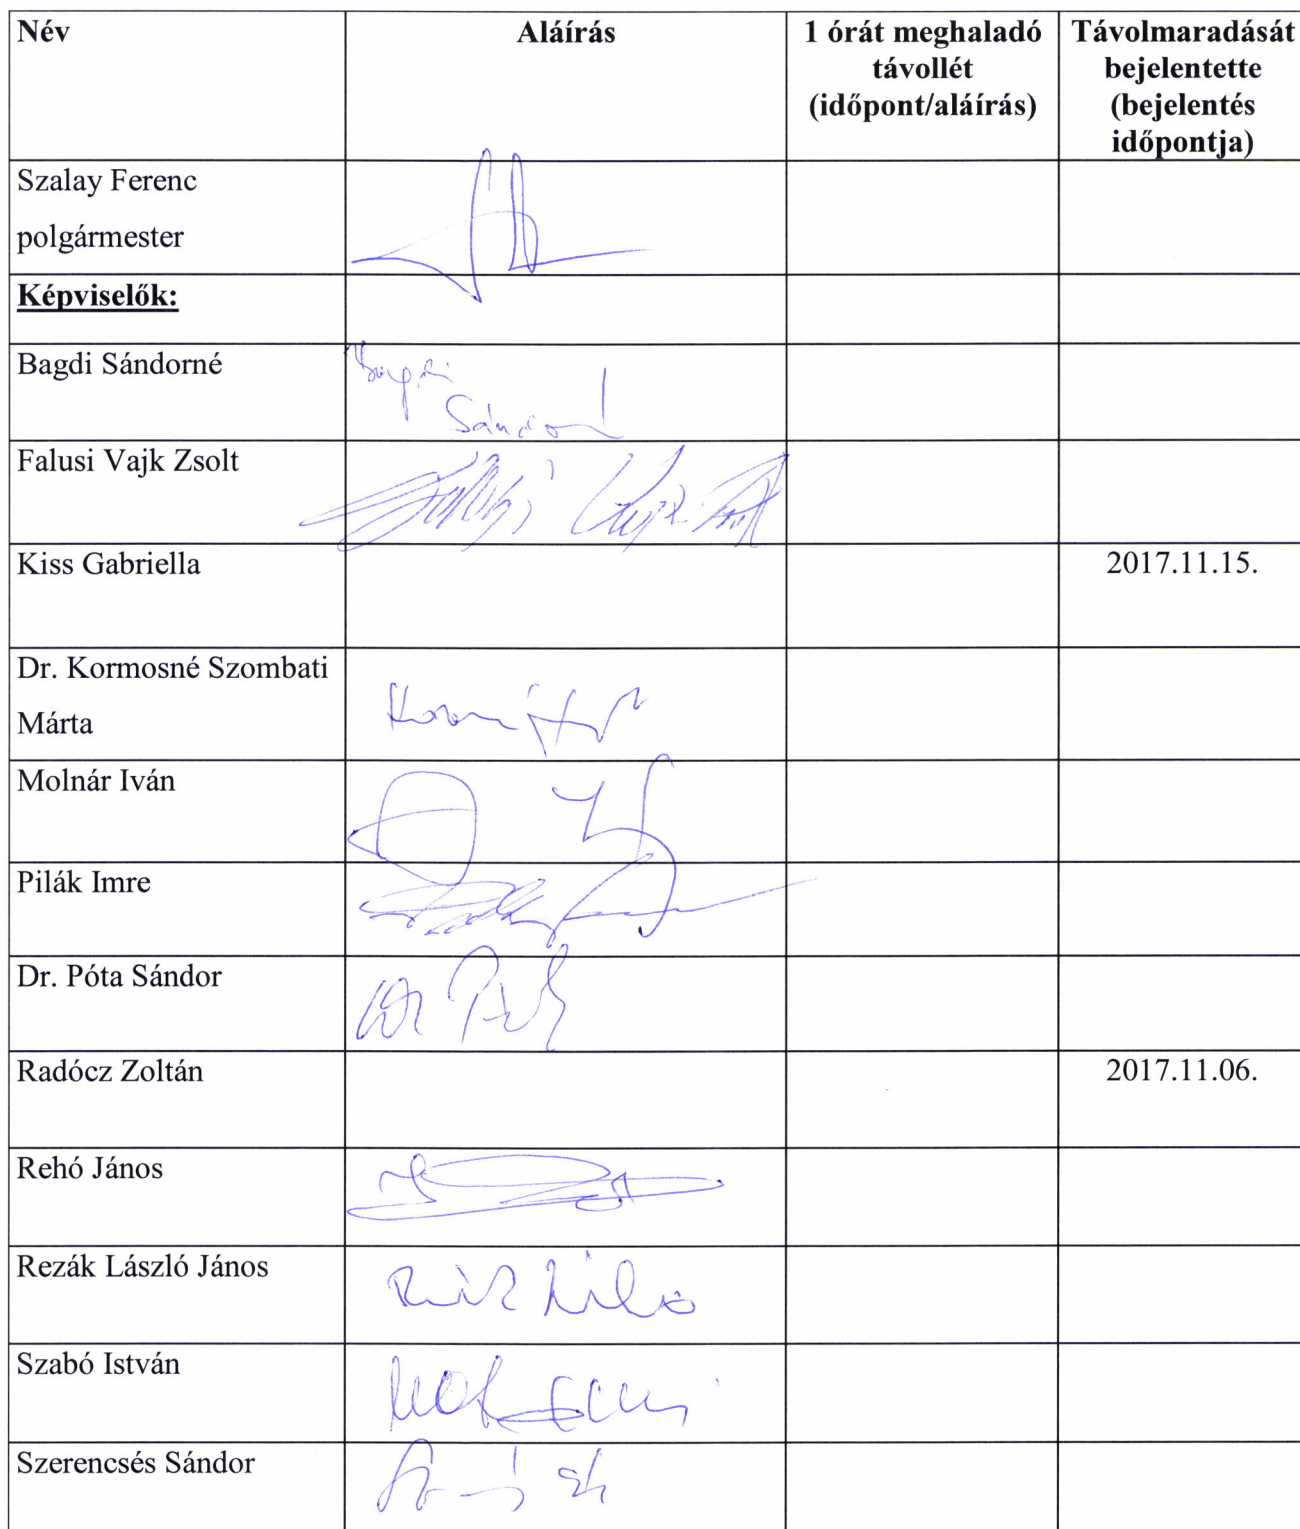 Név
Aláírás
1 órát meghaladó
távollét
(időpont/aláírás)
Távolmaradását
bejelentette
(bejelentés
időpontja)
Szalay Ferenc
polgármester
Képviselők:
Bagdi Sándorné
Bagdi
Sándorné
Falusi Vajk Zsolt
Kiss Gabriella
2017.11.15.
Dr. Kormosné Szombati
Márta
Molnár Iván
Pilák Imre
Dr. Póta Sándor
Radócz Zoltán
2017.11.06.
Rehó János
Rezák László János
Szabó István
Szerencsés Sándor